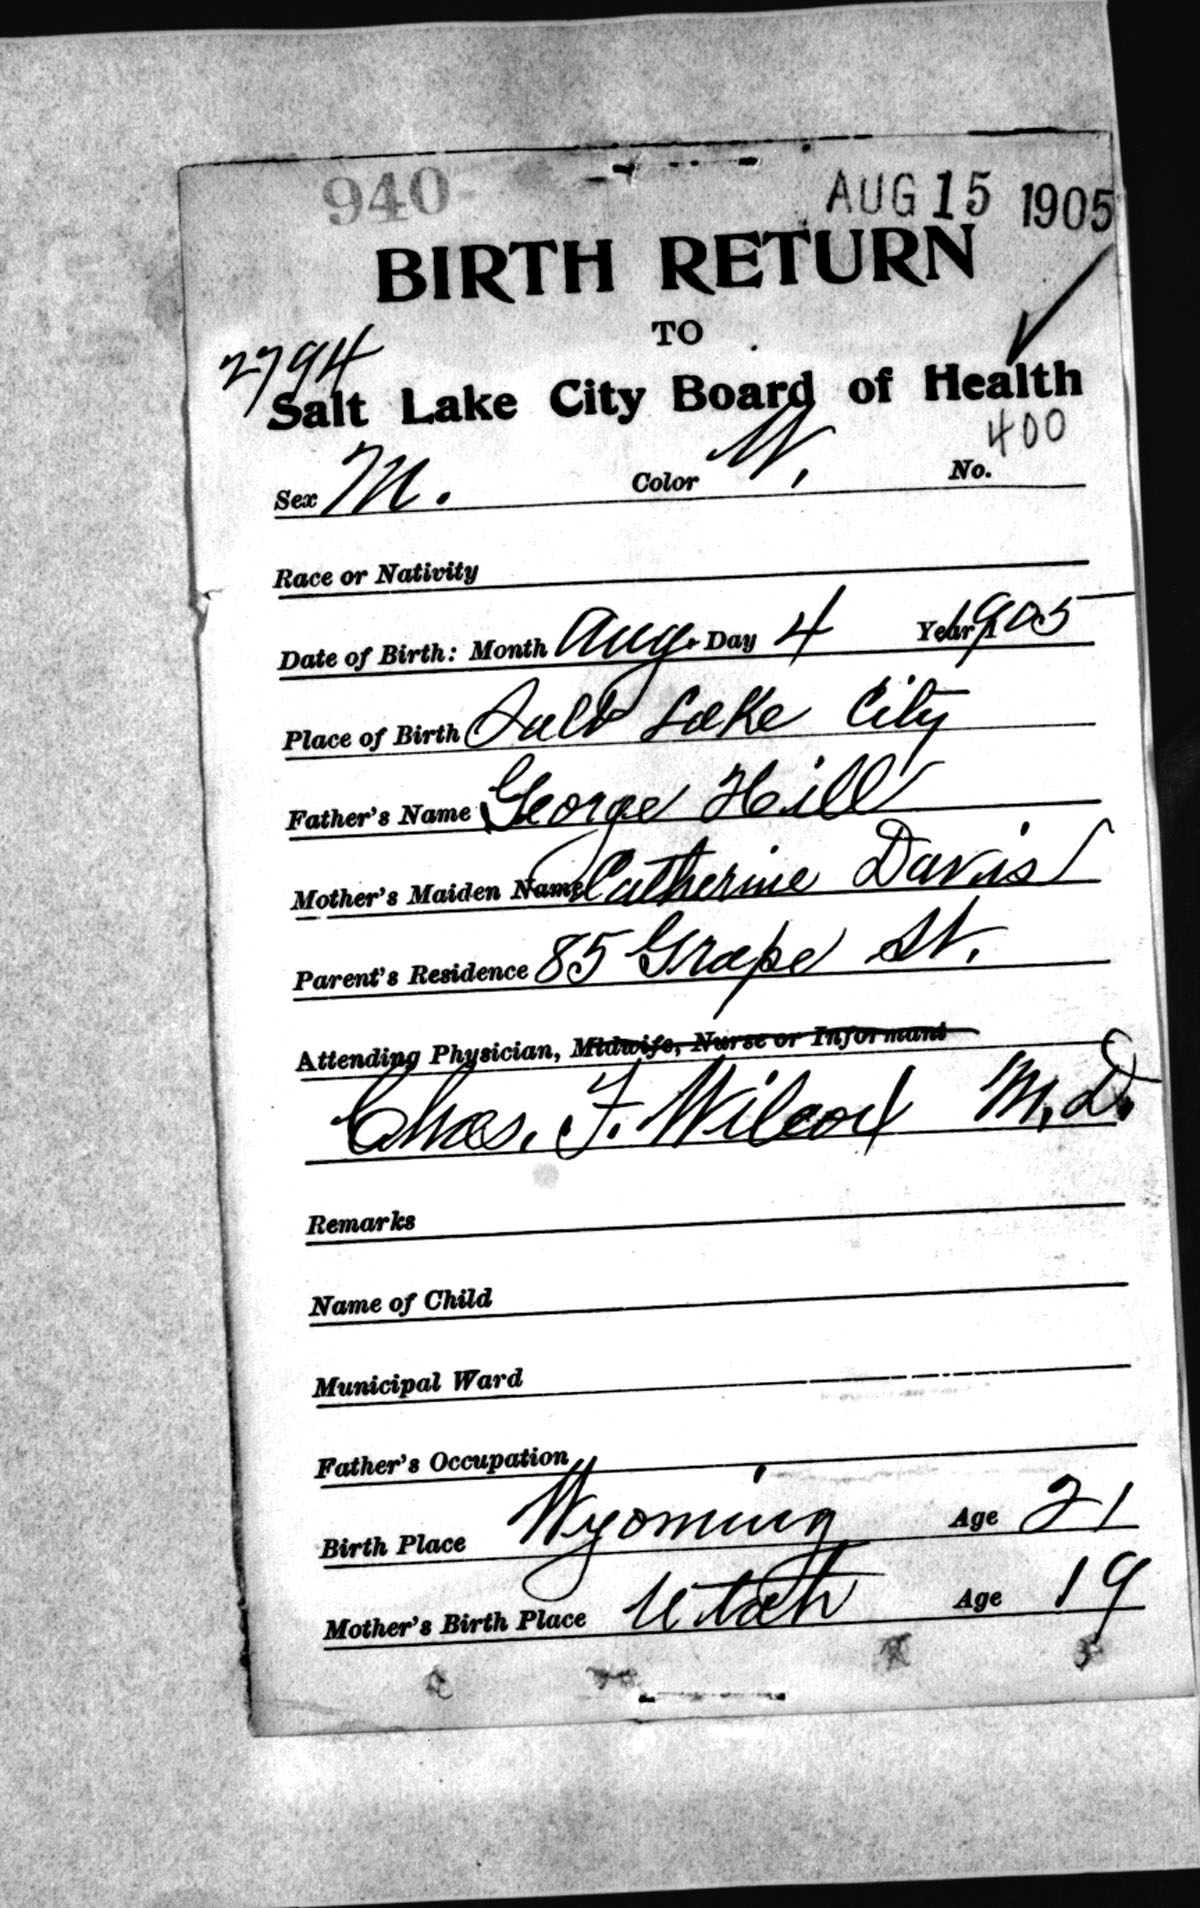 940 AUG 15 1905
BIRTH RETURN
TO
2794
Salt Lake City Board of Health
Sex M. Color W. No. 400
Race or Nativity
Date of Birth: Month Aug. Day 4 Year 1905
Place of Birth Salt Lake City
Father's Name George Hill
Mother's Maiden Name Catherine Davis
Parent's Residence 85 Grape St.
Attending Physician, Midwife, Nurse or Informant
Chas. F. Wilcox M.D.
Remarks
Name of Child
Municipal Ward
Father's Occupation
Birth Place Wyoming Age 21
Mother's Birth Place Utah Age 19